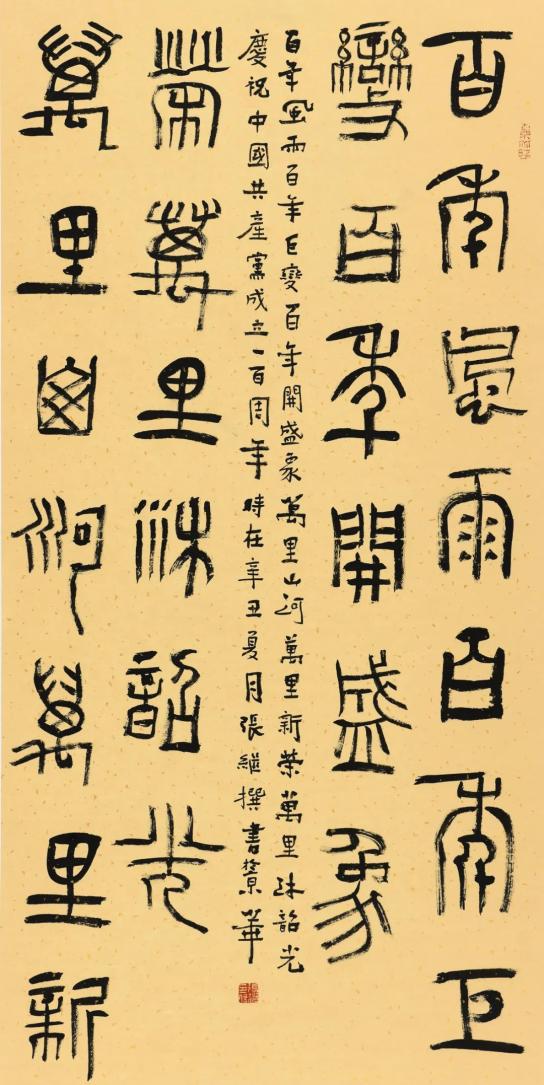 百年風雨百年巨
變百年開盛象
萬里山河萬里新
榮萬里沐韶光
百年風雨百年巨變百年開盛象萬里山河萬里新榮萬里沐韶光
慶祝中國共產黨成立一百周年時在辛丑夏月張繼撰書於京華